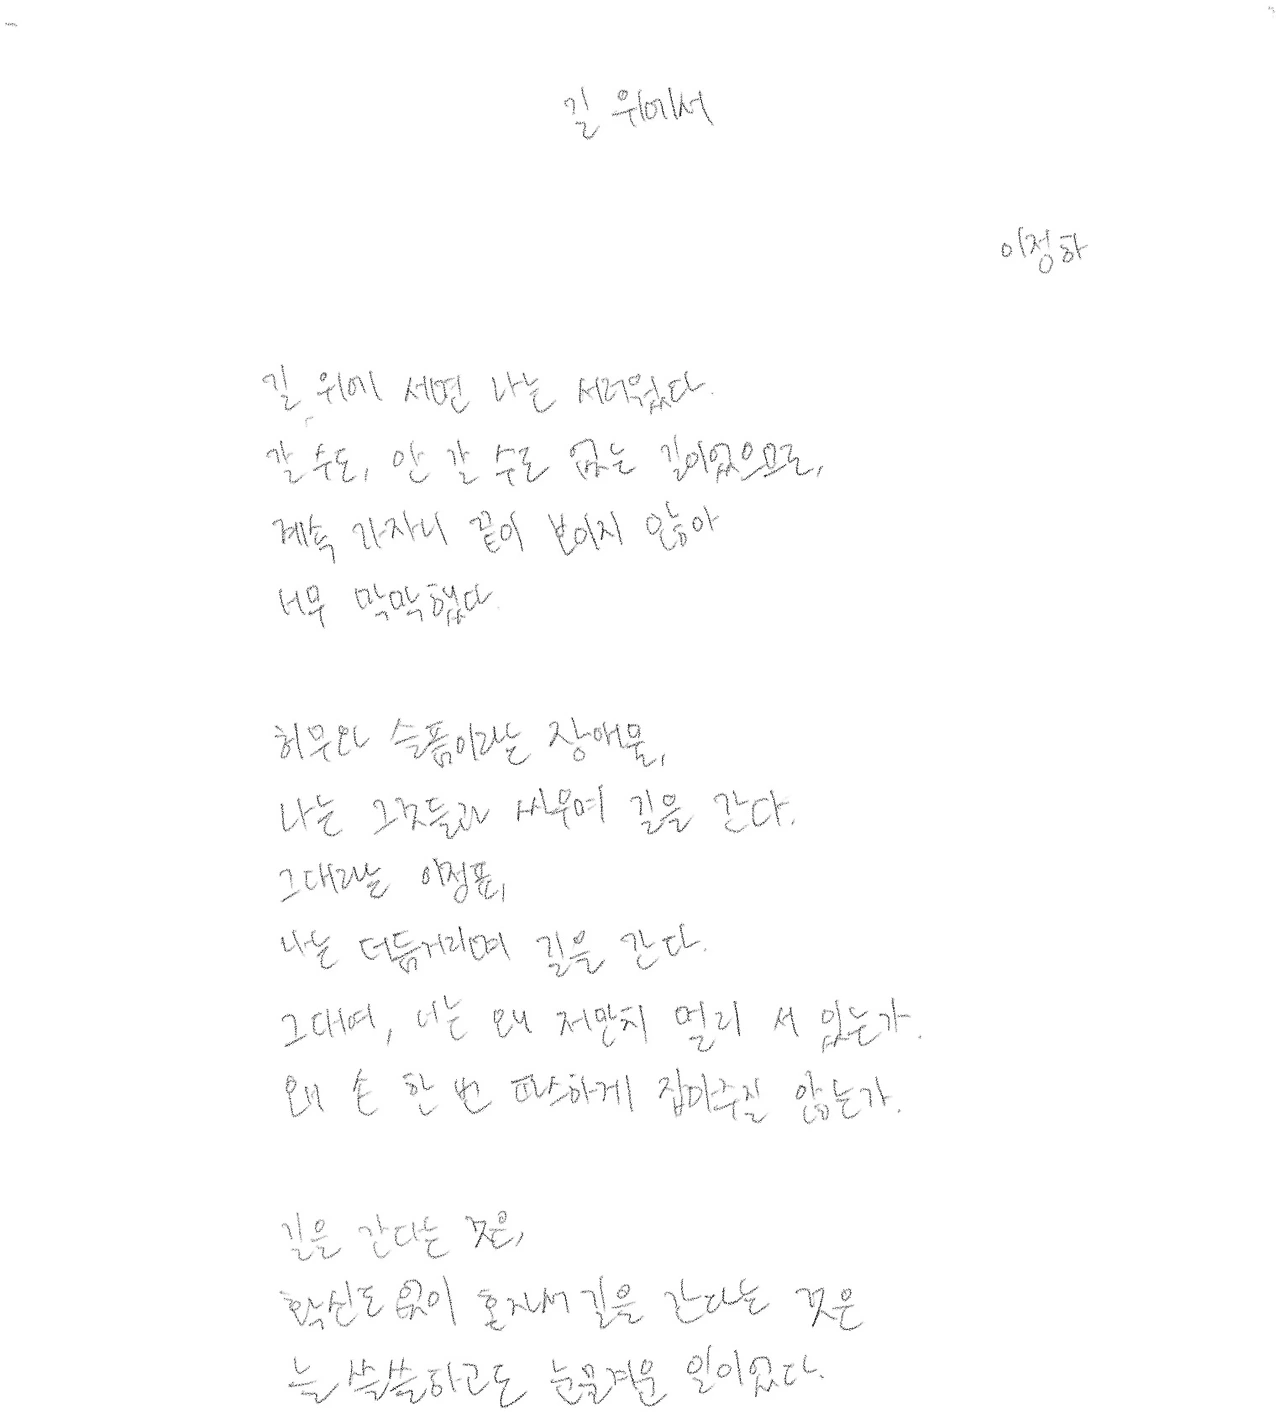 길 위에서
이정하
길 위에 서면 나는 서러웠다.
갈 수도, 안 갈 수도 없는 길이었으므로,
계속 가자니 끝이 보이지 않아
너무 막막했다.
허무와 슬픔이라는 장애물,
나는 그것들과 싸우며 길을 간다.
그대라는 이정표,
나는 더듬거리며 길을 간다.
그대여, 너는 왜 저만치 멀리 서 있는가.
왜 손 한 번 따스하게 잡아주질 않는가.
길을 간다는 것은,
확신도 없이 혼자서 길을 간다는 것은
늘 쓸쓸하고도 눈물겨운 일이었다.